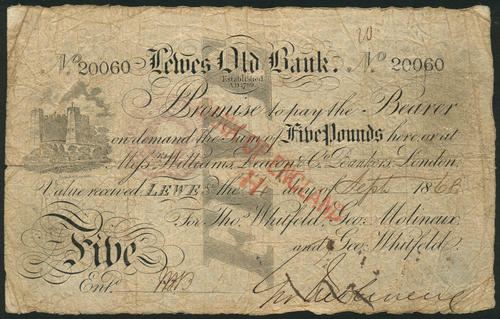 20
No 20060 Lewes Old Bank. No 20060
Established
A.D. 1789
I Promise to pay the Bearer
on demand the Sum of Five Pounds here or at
Messrs Williams, Deacon & Co Bankers London
Value received, LEWES the day of Sept 1868
For Thos Whitfeld, Geo. Molineux
and Geo. Whitfeld.
Five
Entd
ENGLAND